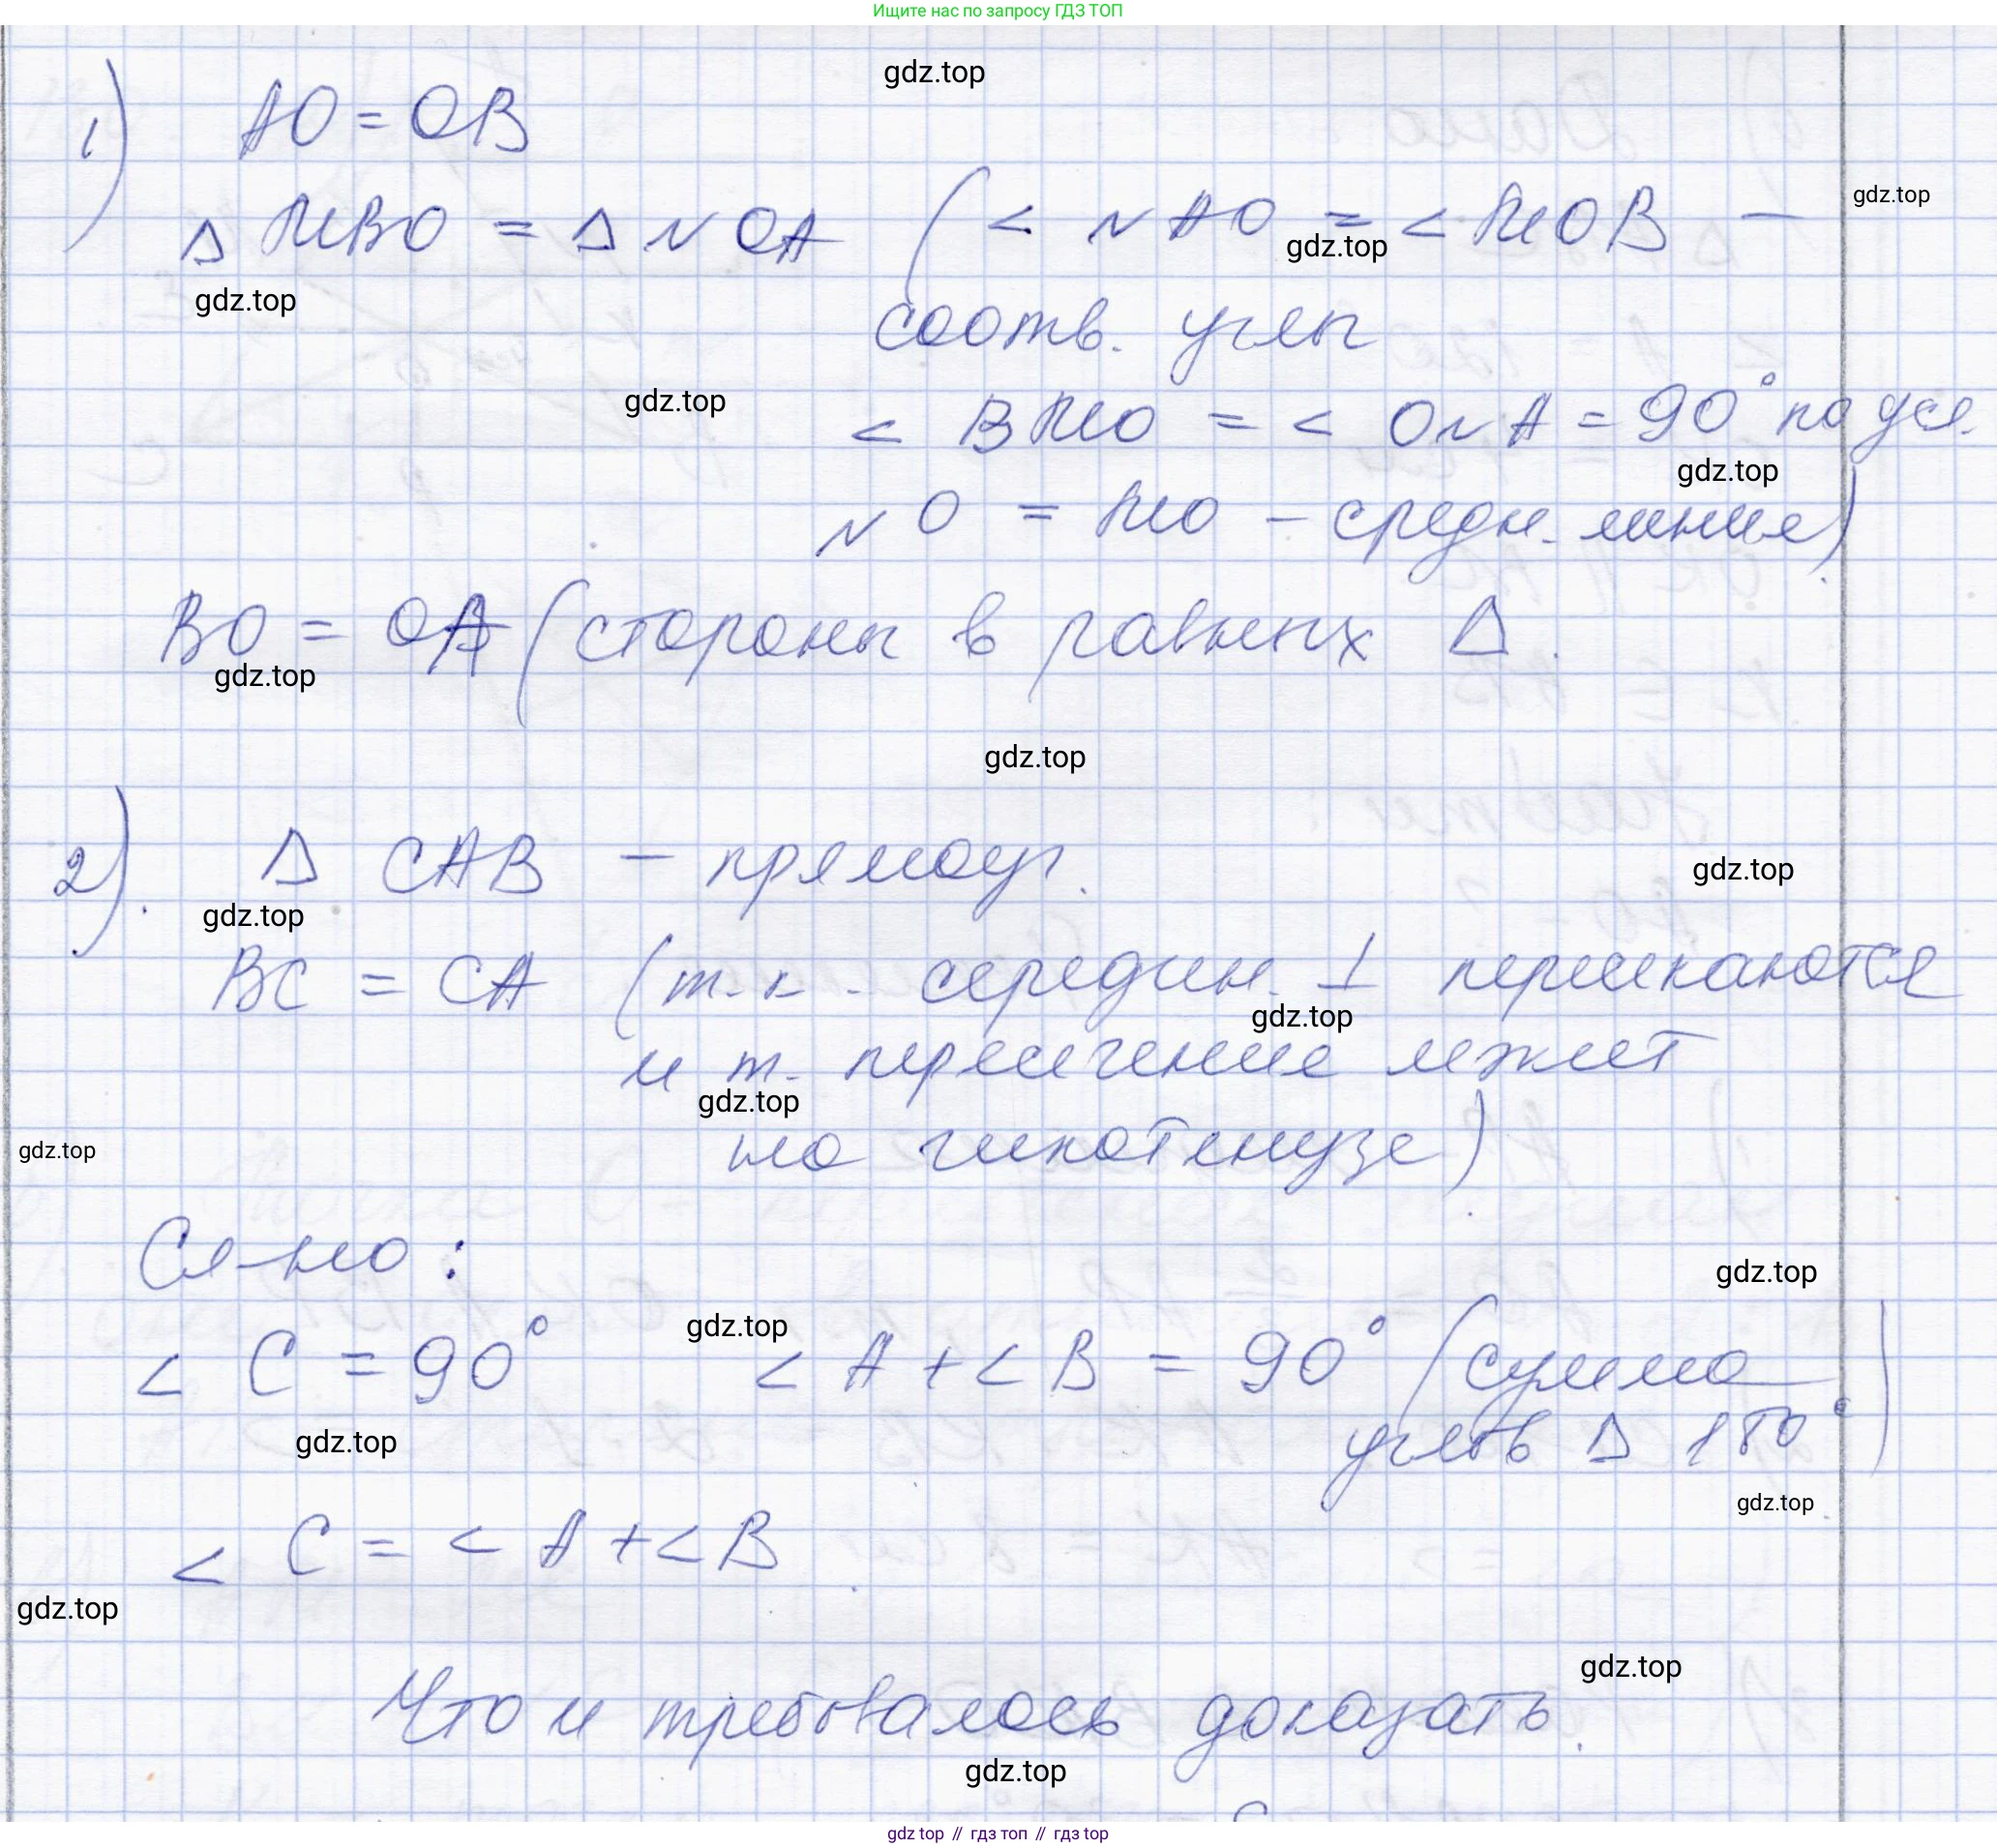 Ищите нас по запросу ГДЗ ТОП
gdz.top
1) AO = OB
△ MBO = △ NOA (< NAO = < MOB —
gdz.top
gdz.top
gdz.top
соотв. углы
gdz.top
< BMO = < ONA = 90° по усл.
gdz.top
NO = MO – средн. линия)
BO = OA (стороны в равных △.
gdz.top
gdz.top
2). △ CAB – прямоуг.
gdz.top
gdz.top
BC = CA (т.к. середин. ⊥ пересекаются
gdz.top
и т. пересечение лежит
gdz.top
на гипотенузе)
gdz.top
Сл-но:
gdz.top
gdz.top
< C = 90° < A + < B = 90° (сумма
углов △ 180°)
gdz.top
gdz.top
< C = < A + < B.
gdz.top
gdz.top
Что и требовалось доказать.
gdz.top
gdz top // гдз топ // gdz top